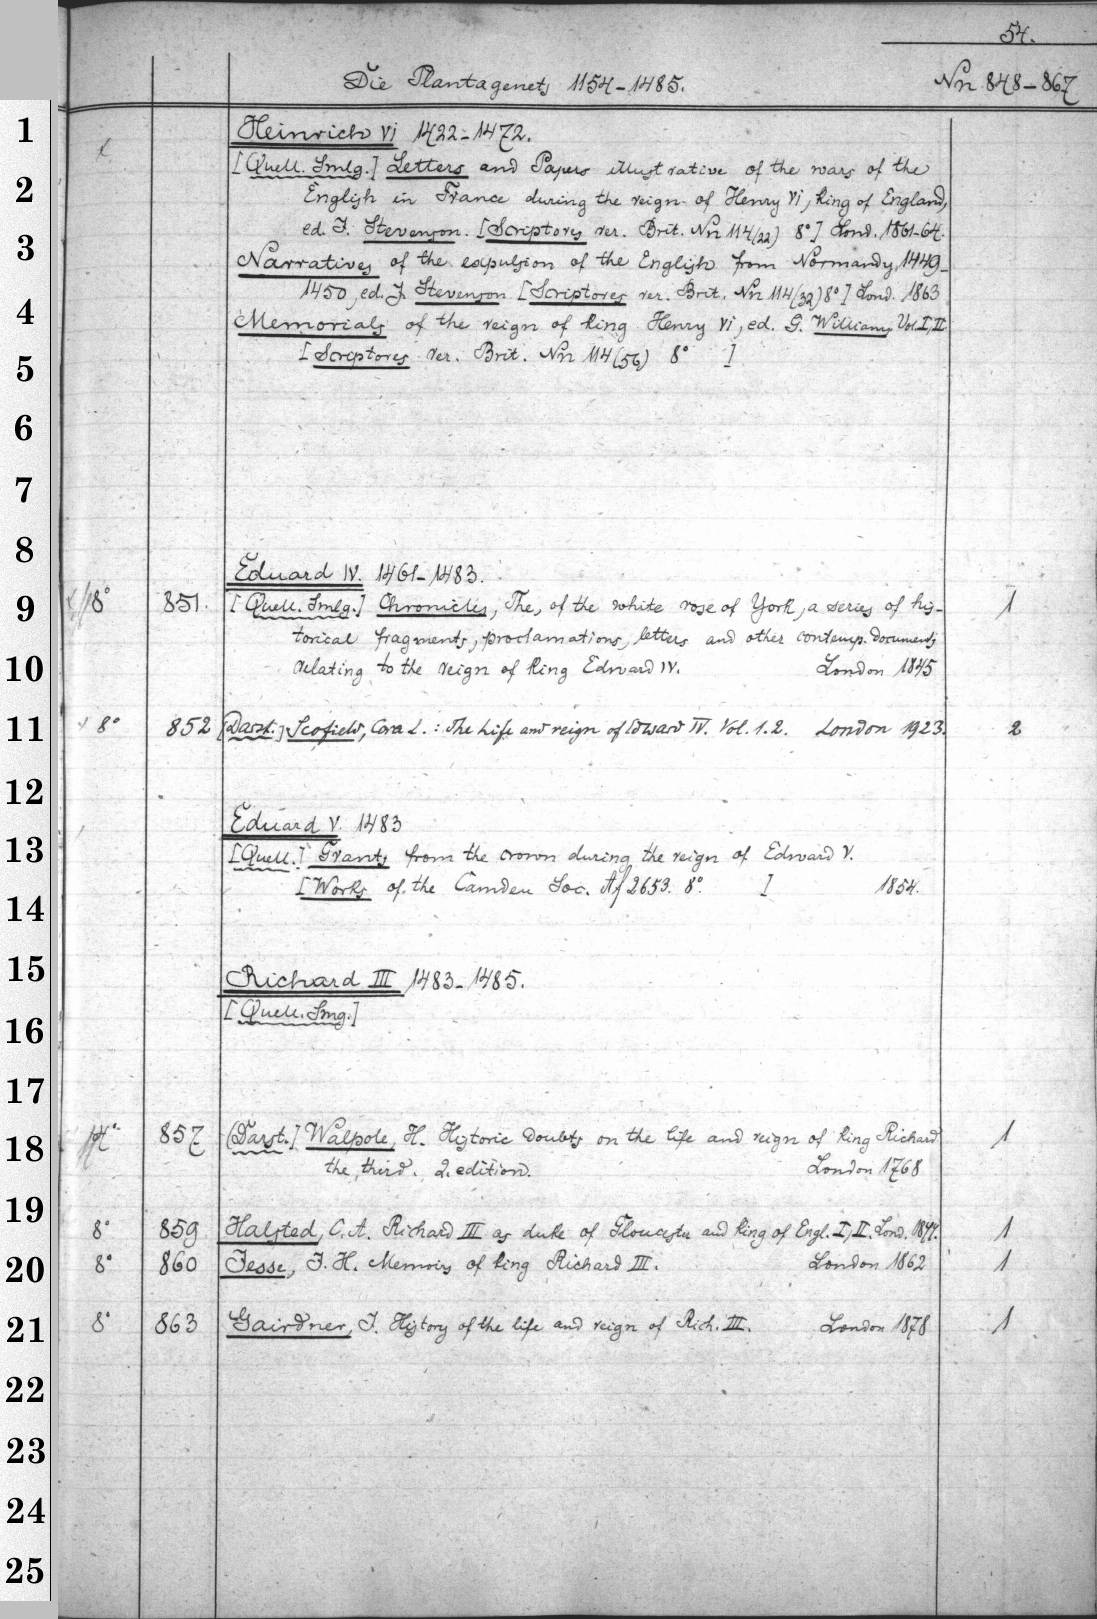 54.
Die Plantagenets 1154-1485. Nn 848-867
1 Heinrich VI 1422-1472.
[Quell. Smlg.] Letters and Papers illustrative of the wars of the
2 English in France during the reign of Henry VI, King of England,
3 ed. J. Stevenson. [Scriptores rer. Brit. Nn 114(22) 8° ] Lond. 1861-64.
Narratives of the expulsion of the English from Normandy, 1449-
4 1450, ed. J. Stevenson [Scriptores rer. Brit. Nn 114(32) 8° ] Lond. 1863
Memorials of the reign of King Henry VI, ed. G. Williams, Vol. I, II
5 [Scriptores rer. Brit. Nn 114(56) 8° ]
6
7
8
Eduard IV. 1461-1483.
9 8° 851. [Quell. Smlg.] Chronicles, The, of the white rose of York, a series of his- 1
torical fragments, proclamations, letters and other contemp. documents
10 relating to the reign of King Edward IV. London 1845
11 8° 852 [Darst.] Scofield, Cora L. : The Life and reign of Edward IV. Vol. 1. 2. London 1923. 2
12
Eduard V. 1483
13 [Quell.] Grants from the crown during the reign of Edward V.
14 [Works of the Camden Soc. Af 2653. 8°. ] 1854.
15 Richard III 1483-1485.
16 [Quell. Smg.]
17
18 4° 857 [Darst.] Walpole, H. Historic doubts on the life and reign of King Richard 1
the third. 2. edition. London 1768
19 8° 859 Halsted, C. A. Richard III as duke of Gloucester and King of Engl. I, II. Lond. 1844. 1
20 8° 860 Jesse, J. H. Memoirs of King Richard III. London 1862 1
21 8° 863 Gairdner, J. History of the life and reign of Rich. III. London 1878 1
22
23
24
25